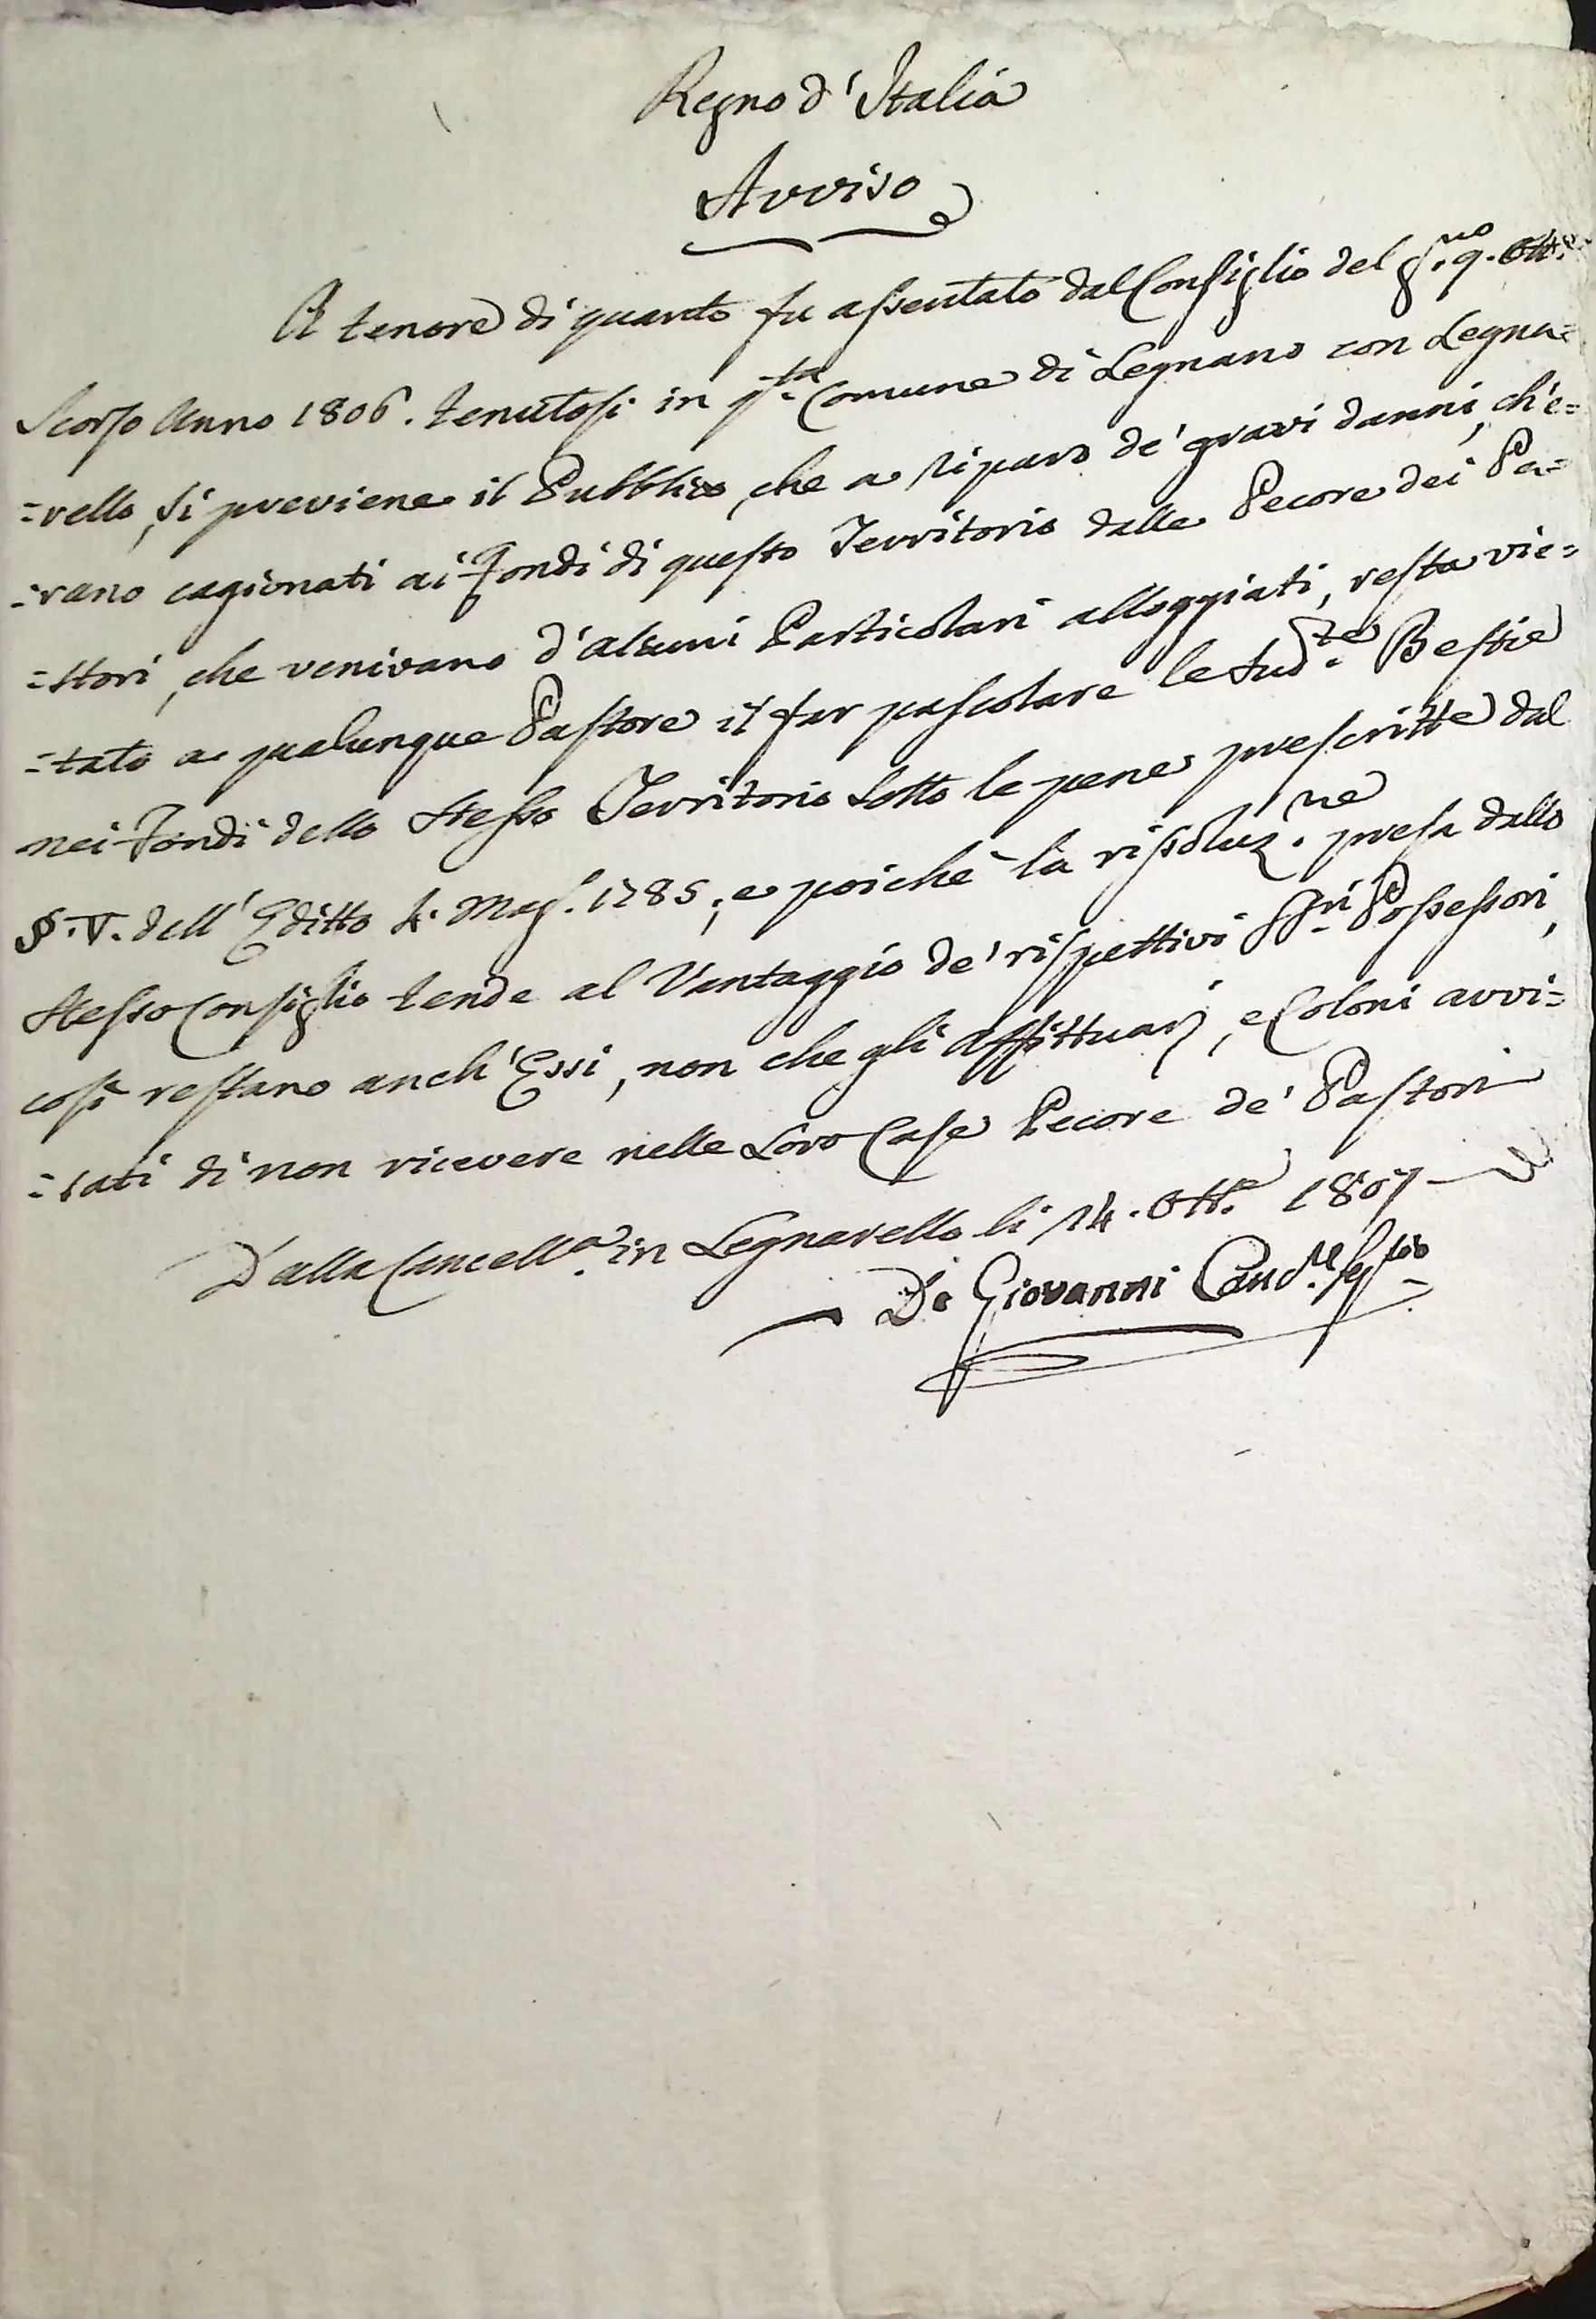 Regno d'Italia
Avviso
A tenore di quanto fu assentato dal Consiglio del g.no 9. Ott.e
Scorso Anno 1806. tenutosi in q.ta Comune di Legnano con Legna=
=rello, si previene il Pubblico, che a riparo de' gravi danni, ch'e=
=rano cagionati ai Fondi di questo Territorio dalle Pecore dei Pa=
=stori, che venivano d'alcuni Particolari alloggiati, resta vie=
=tato a qualunque Pastore il far pascolare le sud.te Bestie
nei Fondi dello stesso Territorio sotto le pene prescritte dal
§. V. dell'Editto 4. Mag. 1785; e poichè la rissoluz.ne presa dallo
stesso Consiglio tende al Vantaggio de' rispettivi SS.ri Possessori,
così restano anch'Essi, non che gli Affittuarj, e Coloni avvi=
=sati di non ricevere nelle Loro Case Pecore de' Pastori
Dalla Cancell.a in Legnarello li 14. Ott.e 1807
De Giovanni Canc.re